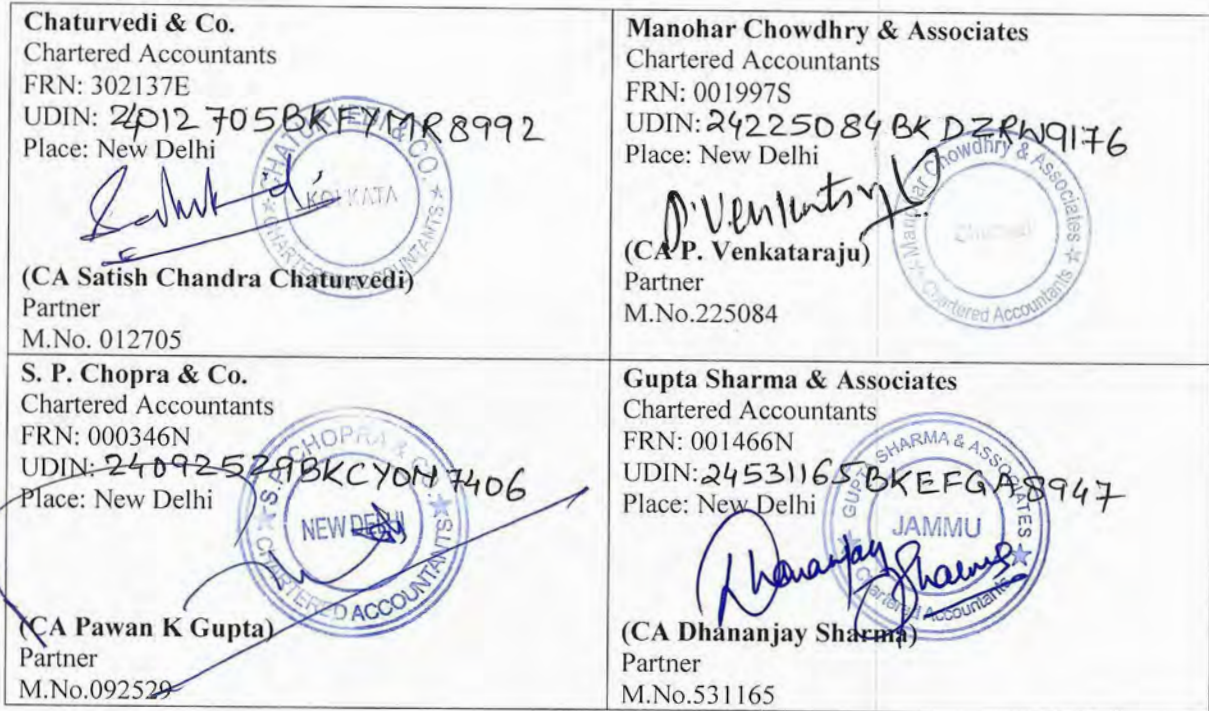 Chaturvedi & Co.
Chartered Accountants
FRN: 302137E
UDIN: 24012705BKFYMR8992
Place: New Delhi
CHATURVEDI & CO.
KOLKATA
CHARTERED ACCOUNTANTS
(CA Satish Chandra Chaturvedi)
Partner
M.No. 012705
Manohar Chowdhry & Associates
Chartered Accountants
FRN: 001997S
UDIN: 24225084BKDZRW9176
Place: New Delhi
Manohar Chowdhry & Associates
Chartered Accountants
P. Venkataraju
(CA P. Venkataraju)
Partner
M.No.225084
S. P. Chopra & Co.
Chartered Accountants
FRN: 000346N
UDIN: 24092529BKCYOM7406
Place: New Delhi
S.P. CHOPRA & CO.
NEW DELHI
CHARTERED ACCOUNTANTS
(CA Pawan K Gupta)
Partner
M.No.092529
Gupta Sharma & Associates
Chartered Accountants
FRN: 001466N
UDIN: 24531165BKEFGA8947
Place: New Delhi
GUPTA SHARMA & ASSOCIATES
JAMMU
Chartered Accountants
Dhananjay Sharma
(CA Dhananjay Sharma)
Partner
M.No.531165